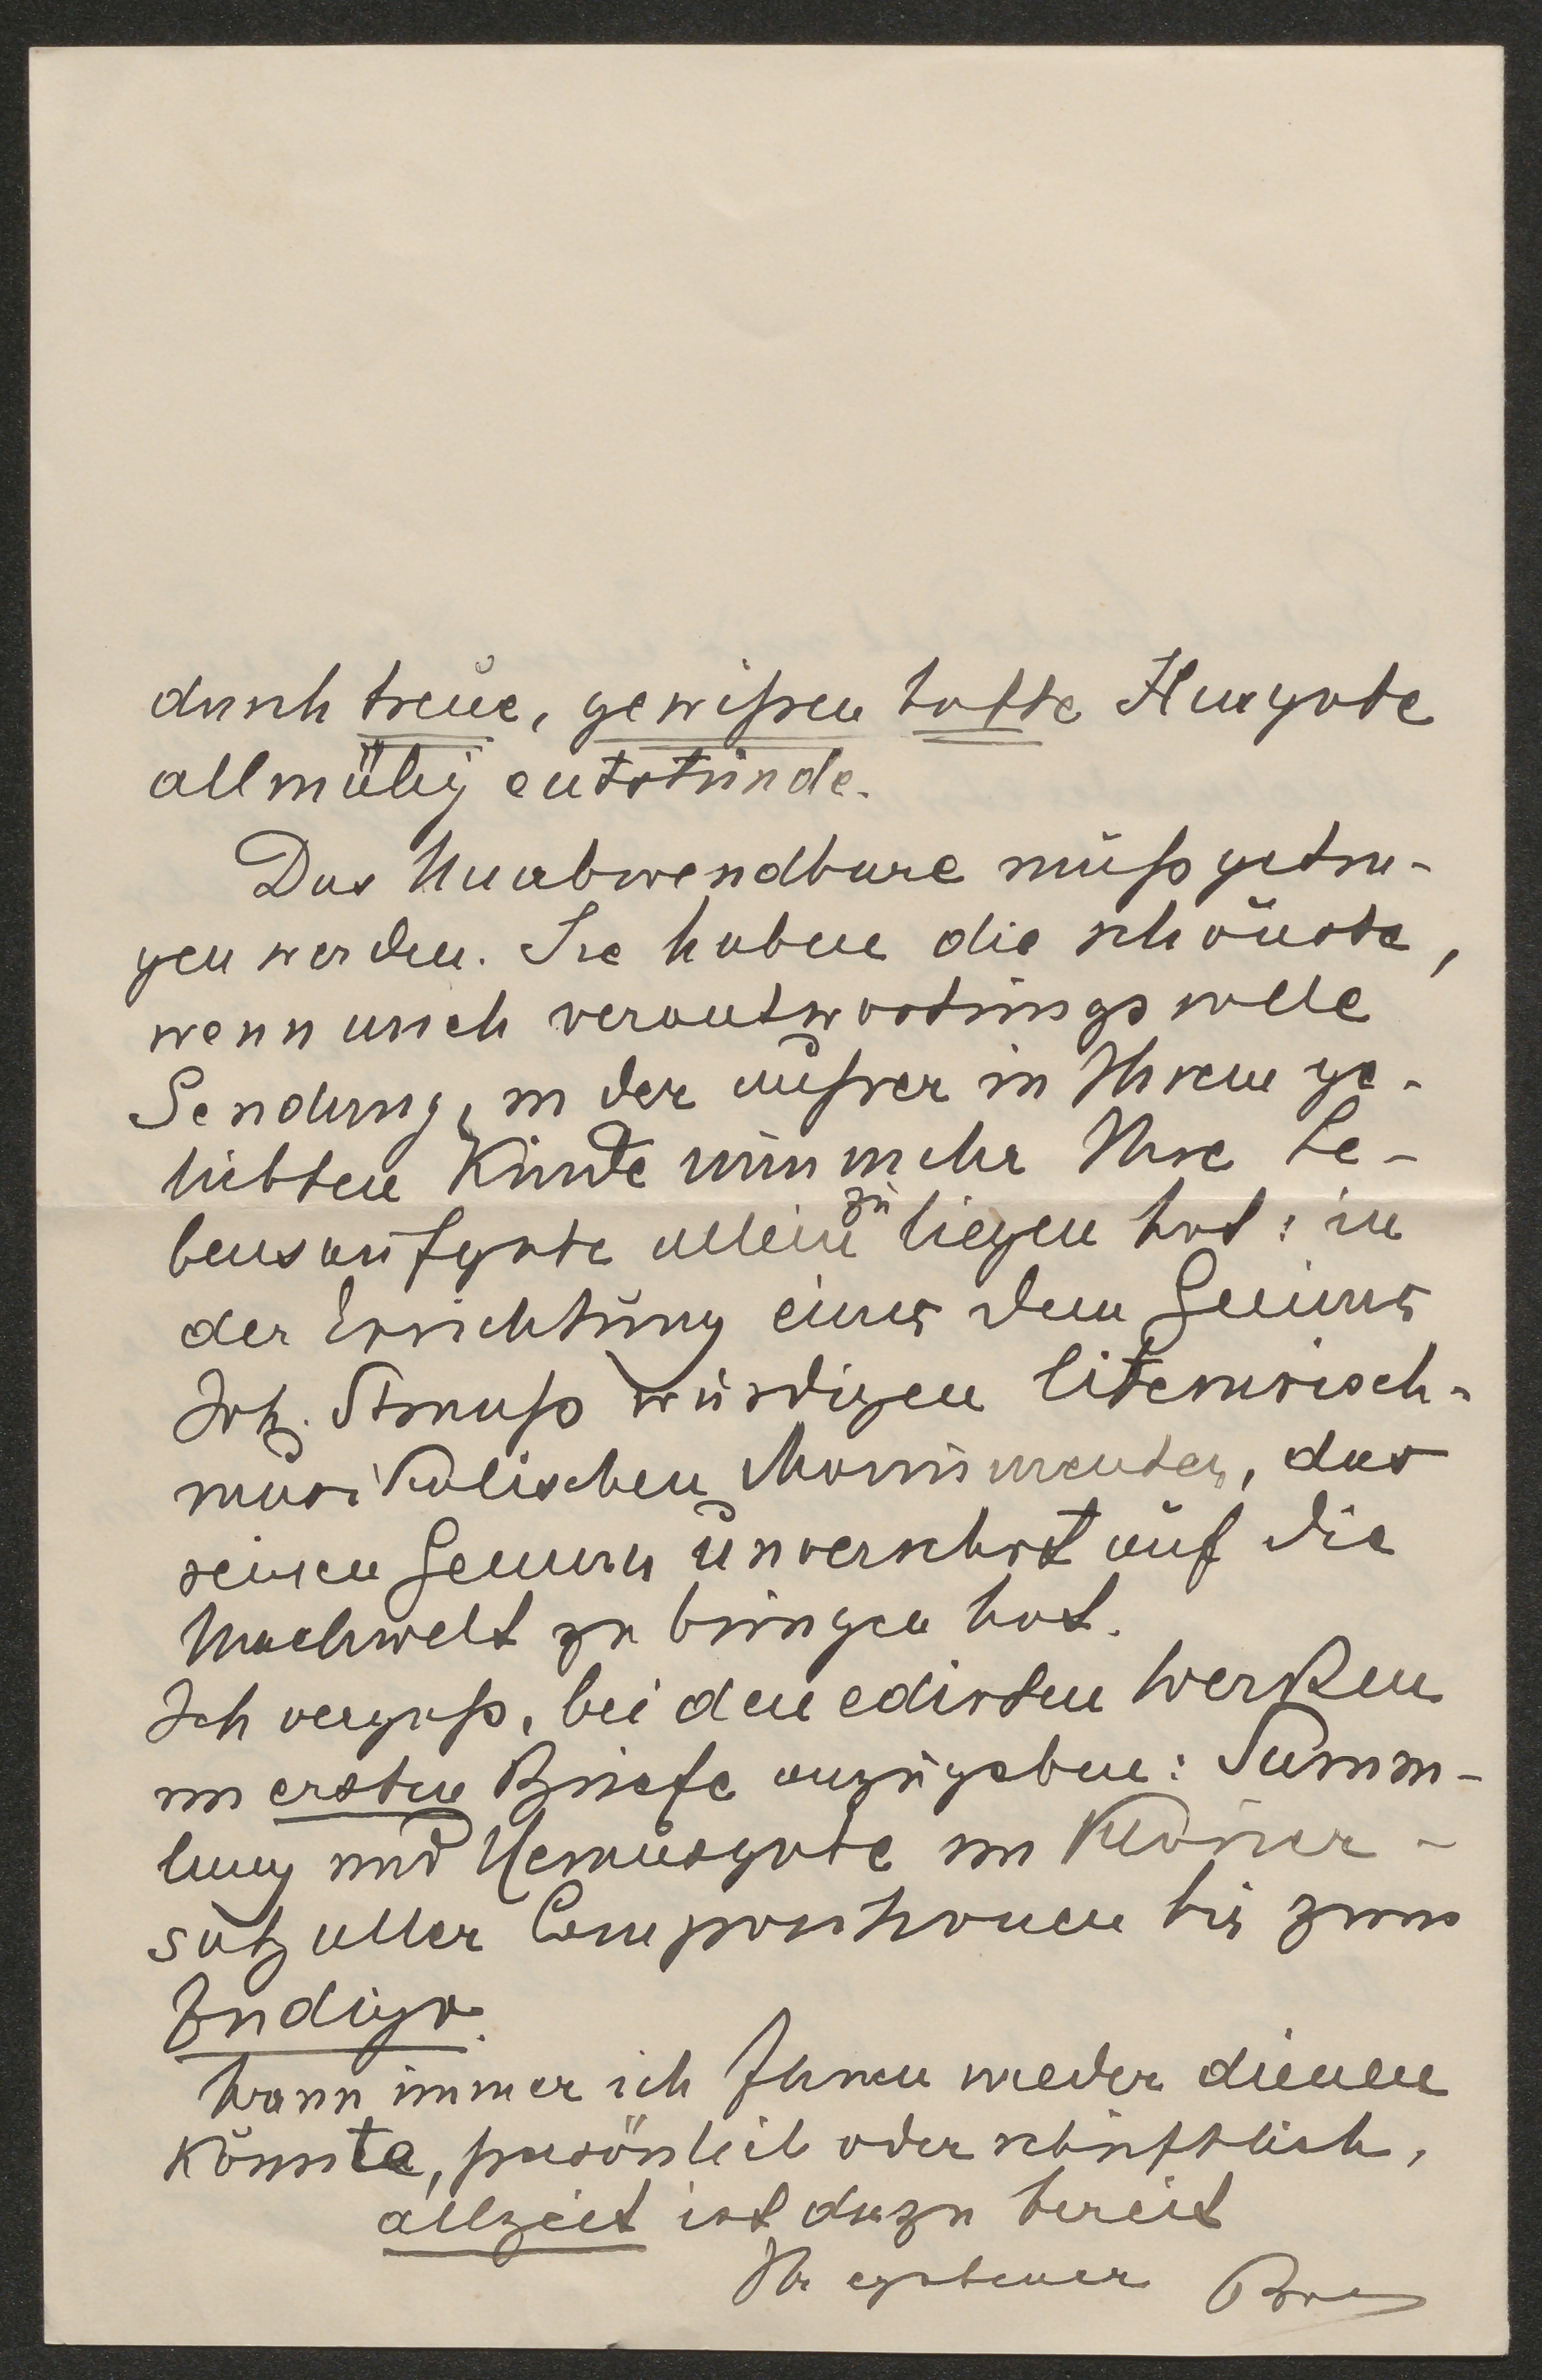 durch treue, gewissenhafte Hingabe
allmälig entstünde.
Das Unabwendbare muß getra-
gen werden. Sie haben die schönste,
wenn auch verantwortungsvolle
Sendung, in der außer in Ihrem ge-
liebten Kinde nunmehr Ihre Le-
bensaufgabe allein zu liegen hat: in
der Errichtung eines dem Genius
Joh. Strauß würdigen literarisch-
musikalischen Monumentes, das
seinen Genius unversehrt auf die
Nachwelt zu bringen hat.
Ich vergaß, bei den edirten Werken
im ersten Briefe anzugeben: Samm-
lung und Herausgabe im Klavier-
satz aller Compositionen bis zum
Indigo.
Wann immer ich Ihnen wieder dienen
könnte, persönlich oder schriftlich,
allzeit ist dazu bereit
Ihr ergebener